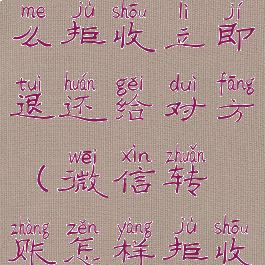 me jù shōu lì jí
么拒收立即
tuì huán gěi duì fāng
退还给对方
wēi xìn zhuǎn
（微信转
zhàng zěn yàng jù shōu
账怎样拒收